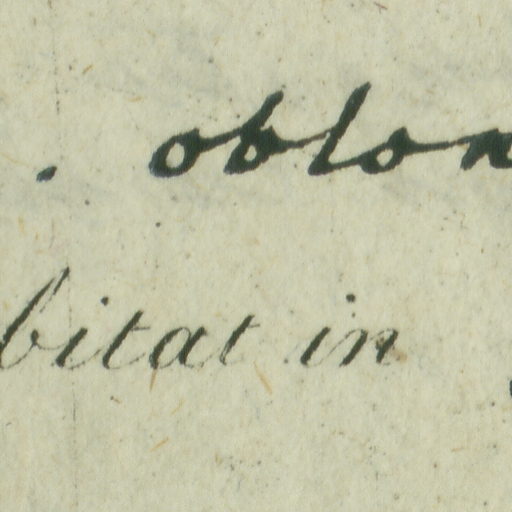 . oblon
bitat in